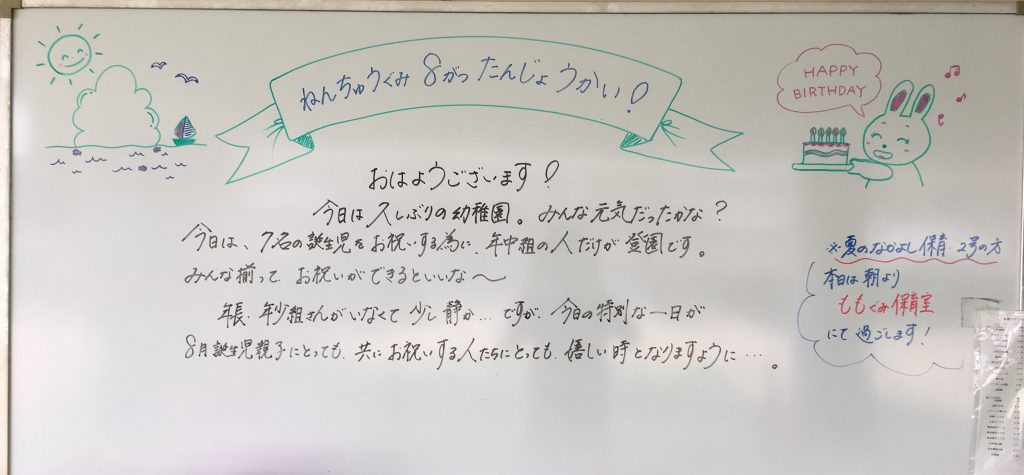 ねんちゅうぐみ 8がつ たんじょうかい!
HAPPY
BIRTHDAY
おはようございます!
今日は久しぶりの幼稚園。みんな元気だったかな?
今日は、7名の誕生児をお祝いする為に、年中組の人だけが登園です。
みんな揃って お祝いができるといいな〜
年長、年少組さんがいなくて 少し静か…ですが、今日の特別な一日が
8月誕生児親子にとっても、共にお祝いする人たちにとっても、嬉しい時となりますように…。
※夏のなかよし保育、2号の方
本日は朝より
ももぐみ保育室
にて過ごします!